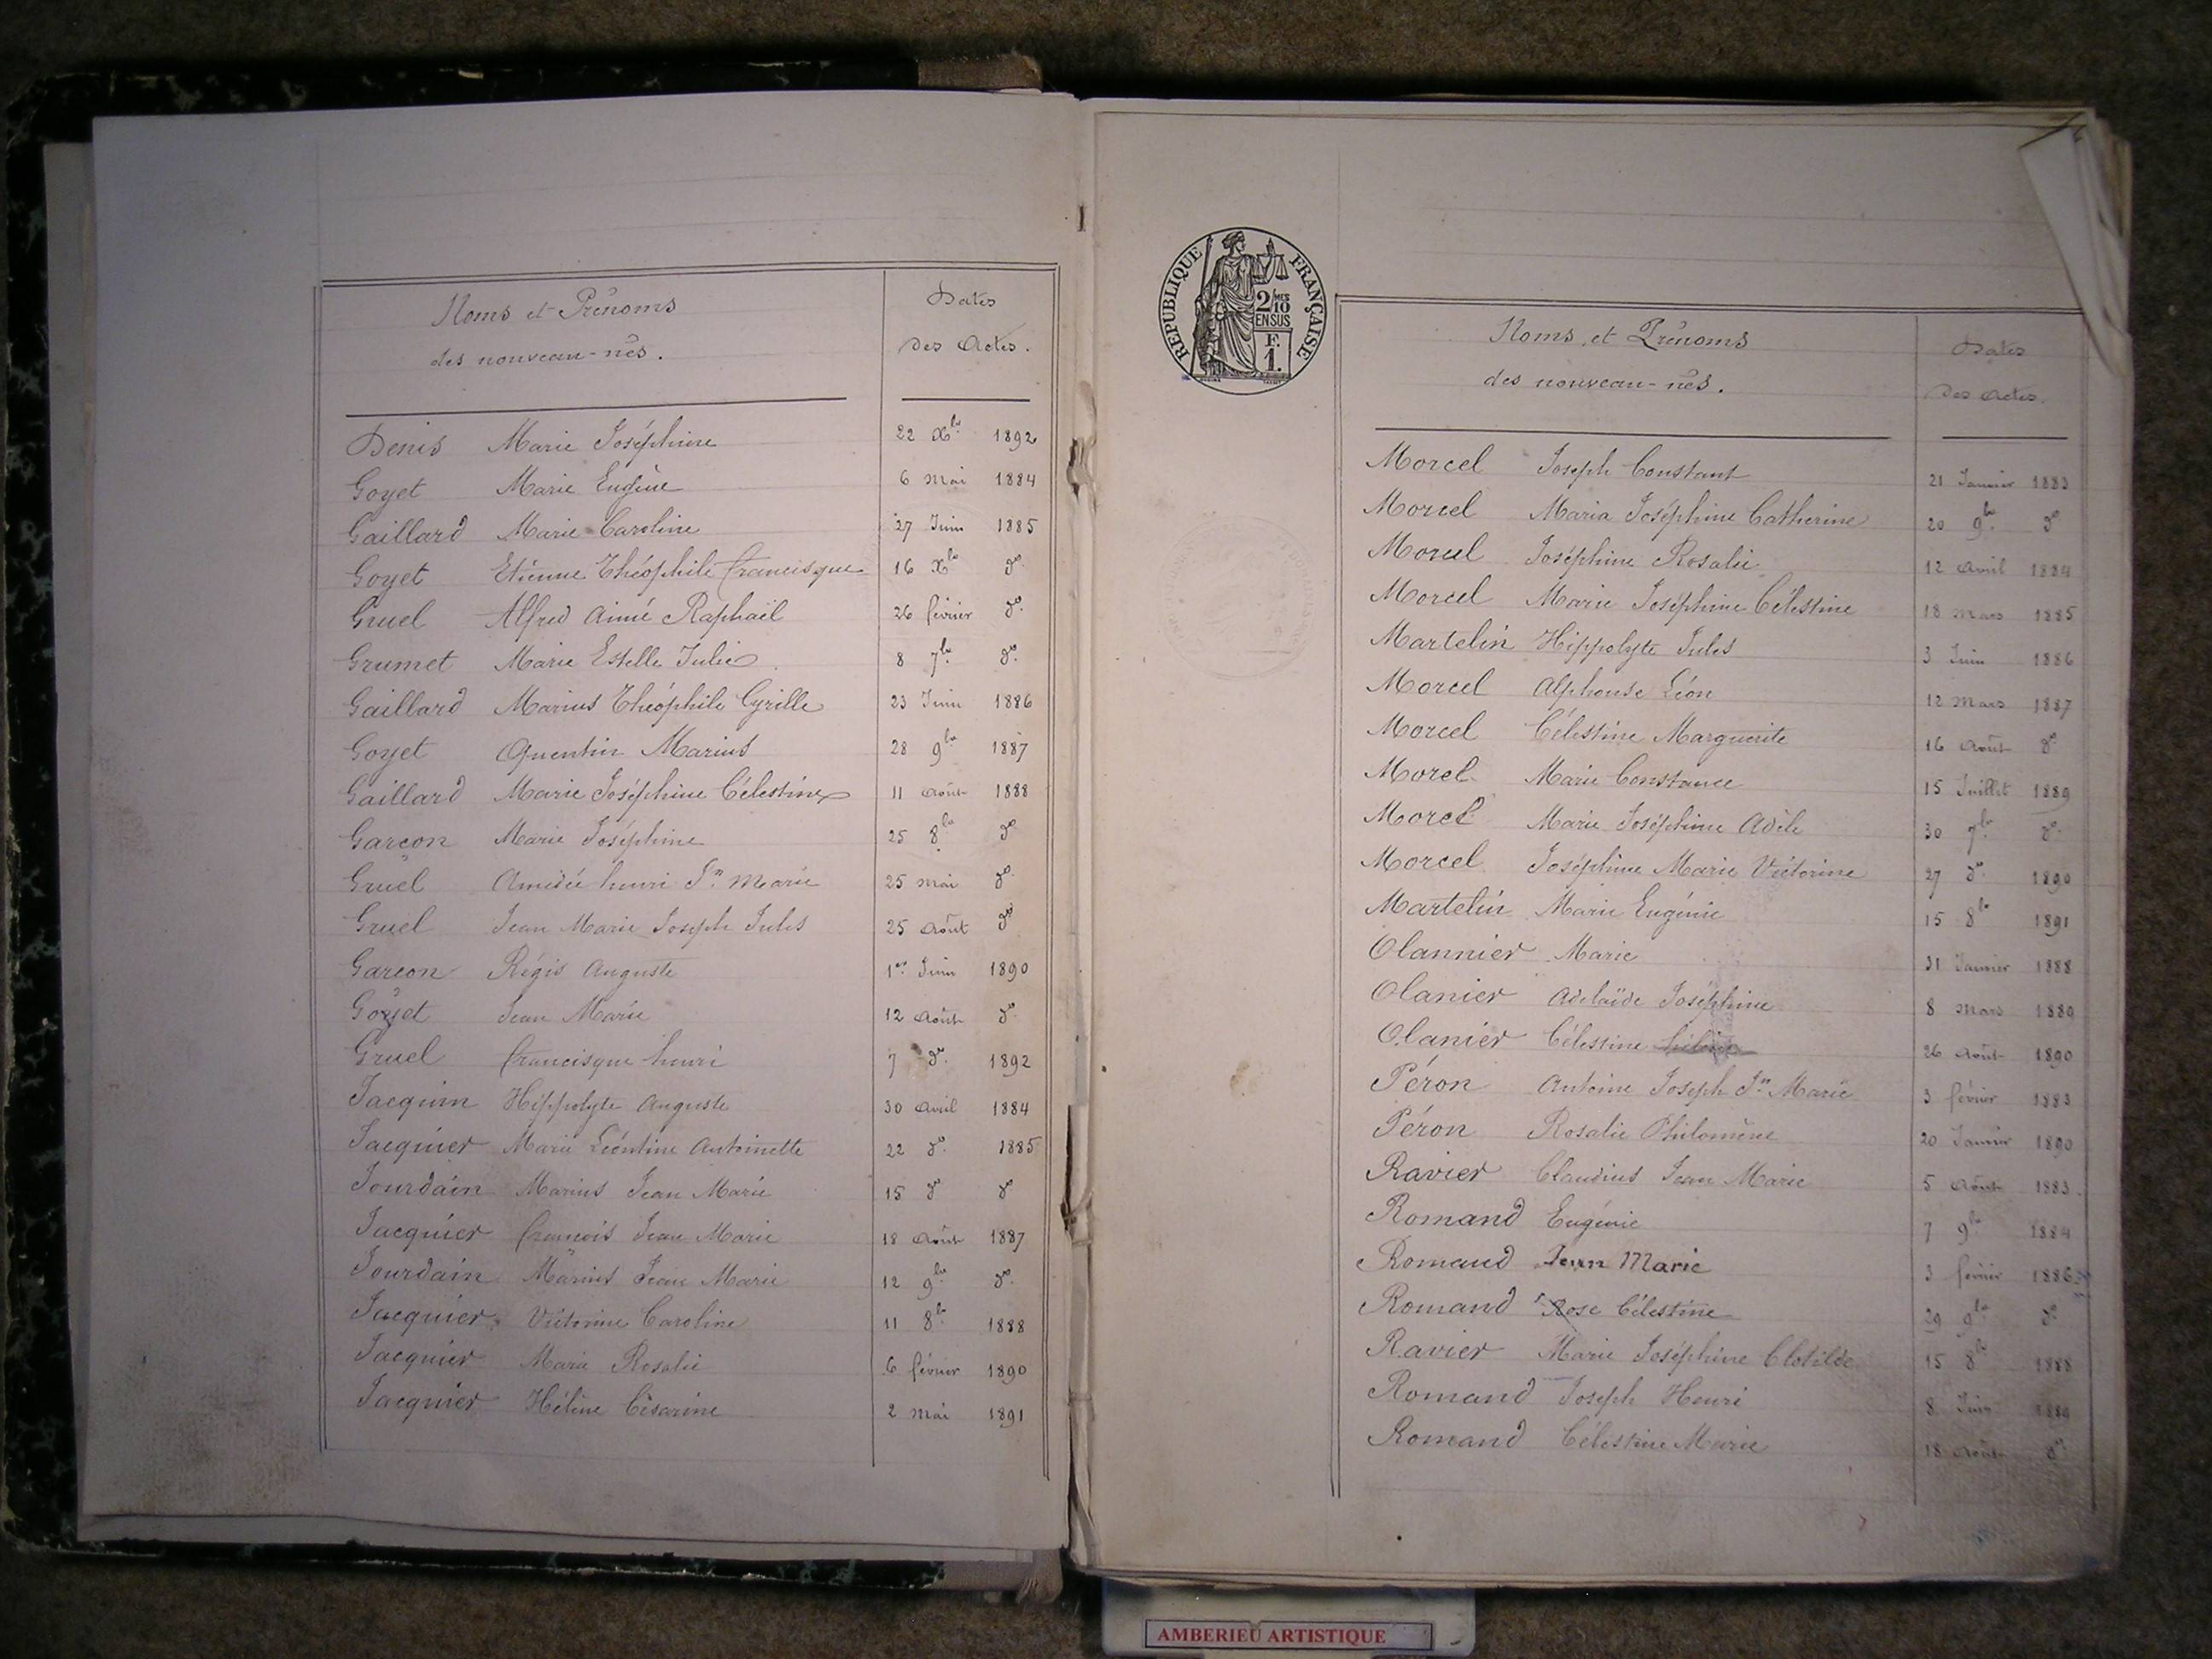 Noms et Prénoms
des nouveau-nés.
Dates
des Actes.
Denis Marie Joséphine 22 Xbre 1892
Goyet Marie Eugène 6 Mai 1884
Gaillard Marie Caroline 27 Juin 1885
Goyet Etienne Théophile Francisque 16 Xbre do
Gruel Alfred Aimé Raphaël 26 février do
Grumet Marie Estelle Julie 8 7bre do
Gaillard Marius Théophile Cyrille 23 Juin 1886
Goyet Quentin Marius 28 9bre 1887
Gaillard Marie Joséphine Célestine 11 Août 1888
Garcon Marie Joséphine 25 8bre do
Gruel Amédée henri Jn Marie 25 Mai do
Gruel Jean Marie Joseph Jules 25 Août do
Garcon Régis Auguste 1er Juin 1890
Goyet Jean Marie 12 Août do
Gruel Francisque henri 7 do 1892
Jacquin Hippolyte Auguste 30 Avril 1884
Jacquier Marie Léontine Antoinette 22 do 1885
Jourdain Marius Jean Marie 15 do do
Jacquier François Jean Marie 18 Août 1887
Jourdain Marius Jean Marie 12 9bre do
Jacquier Victorine Caroline 11 8bre 1888
Jacquier Marie Rosalie 6 février 1890
Jacquier Hélène Césarine 2 Mai 1891
REPUBLIQUE FRANÇAISE
2/10MES
EN SUS
F.
1.
Noms et Prénoms
des nouveau-nés.
Dates
des Actes.
Morcel Joseph Constant 21 Janvier 1883
Morcel Maria Joséphine Catherine 20 9bre do
Morcel Joséphine Rosalie 12 Avril 1884
Morcel Marie Joséphine Célestine 18 Mars 1885
Martelin Hippolyte Jules 3 Juin 1886
Morcel Alphonse Léon 12 Mars 1887
Morcel Célestine Marguerite 16 Août do
Morel Marie Constance 15 Juillet 1889
Morcel Marie Joséphine Adèle 30 7bre do
Morcel Joséphine Marie Victorine 27 do 1890
Martelin Marie Eugénie 15 8bre 1891
Olannier Marie 31 Janvier 1888
Olanier Adelaïde Joséphine 8 Mars 1889
Olanier Célestine 26 Août 1890
Péron Antoine Joseph Jn Marie 3 février 1883
Péron Rosalie Philomène 20 Janvier 1890
Ravier Claudius Jean Marie 5 Août 1883
Romand Eugénie 7 9bre 1884
Romand Jean Marie 3 février 1886
Romand Rose Célestine 29 9bre do
Ravier Marie Joséphine Clotilde 15 8bre 1888
Romand Joseph Henri 8 Juin 1889
Romand Célestine Marie 18 Août do
AMBERIEU ARTISTIQUE